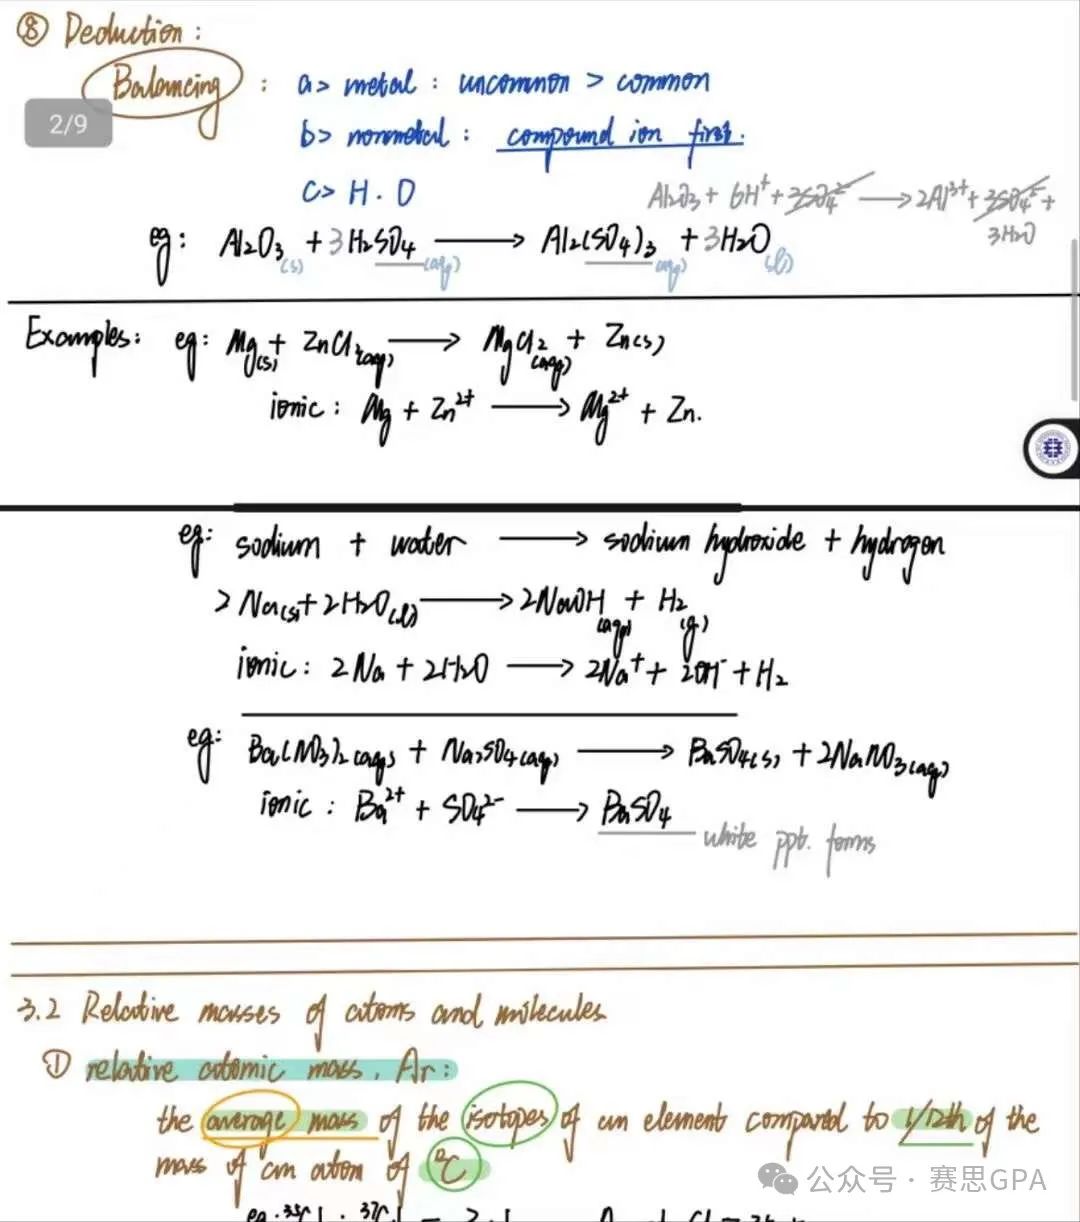 ⑧ Deduction :
Balancing : a> metal : uncommon > common
2/9
b> nonmetal : compound ion first.
c> H . O
Al2O3 + 6H⁺ + 3SO4²⁻ → 2Al³⁺ + 3SO4²⁻ +
3H2O
eg: Al2O3(s) + 3H2SO4(aq) → Al2(SO4)3(aq) + 3H2O(l)
Examples: eg: Mg(s) + ZnCl2(aq) → MgCl2(aq) + Zn(s)
ionic : Mg + Zn²⁺ → Mg²⁺ + Zn.
eg: sodium + water → sodium hydroxide + hydrogen
2Na(s) + 2H2O(l) → 2NaOH(aq) + H2(g)
ionic : 2Na + 2H2O → 2Na⁺ + 2OH⁻ + H2
eg: Ba(NO3)2(aq) + Na2SO4(aq) → BaSO4(s) + 2NaNO3(aq)
ionic : Ba²⁺ + SO4²⁻ → BaSO4
white ppt. forms
3.2 Relative masses of atoms and molecules
① relative atomic mass, Ar :
the average mass of the isotopes of an element compared to 1/12th of the
mass of an atom of ¹²C
公众号 · 赛思GPA